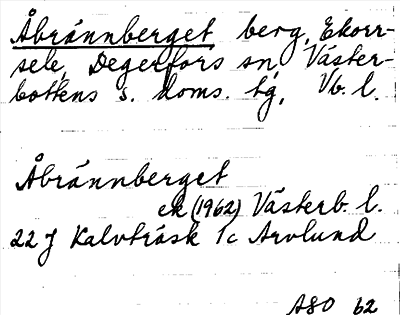 Åbrännberget berg, Ekorr-
sele, Degerfors sn, Väster-
bottens s. doms. tg, Vb. l.
Åbrännberget
ek (1962) Västerb. l.
22 J Kalvträsk 1c Arvlund
ASO 62